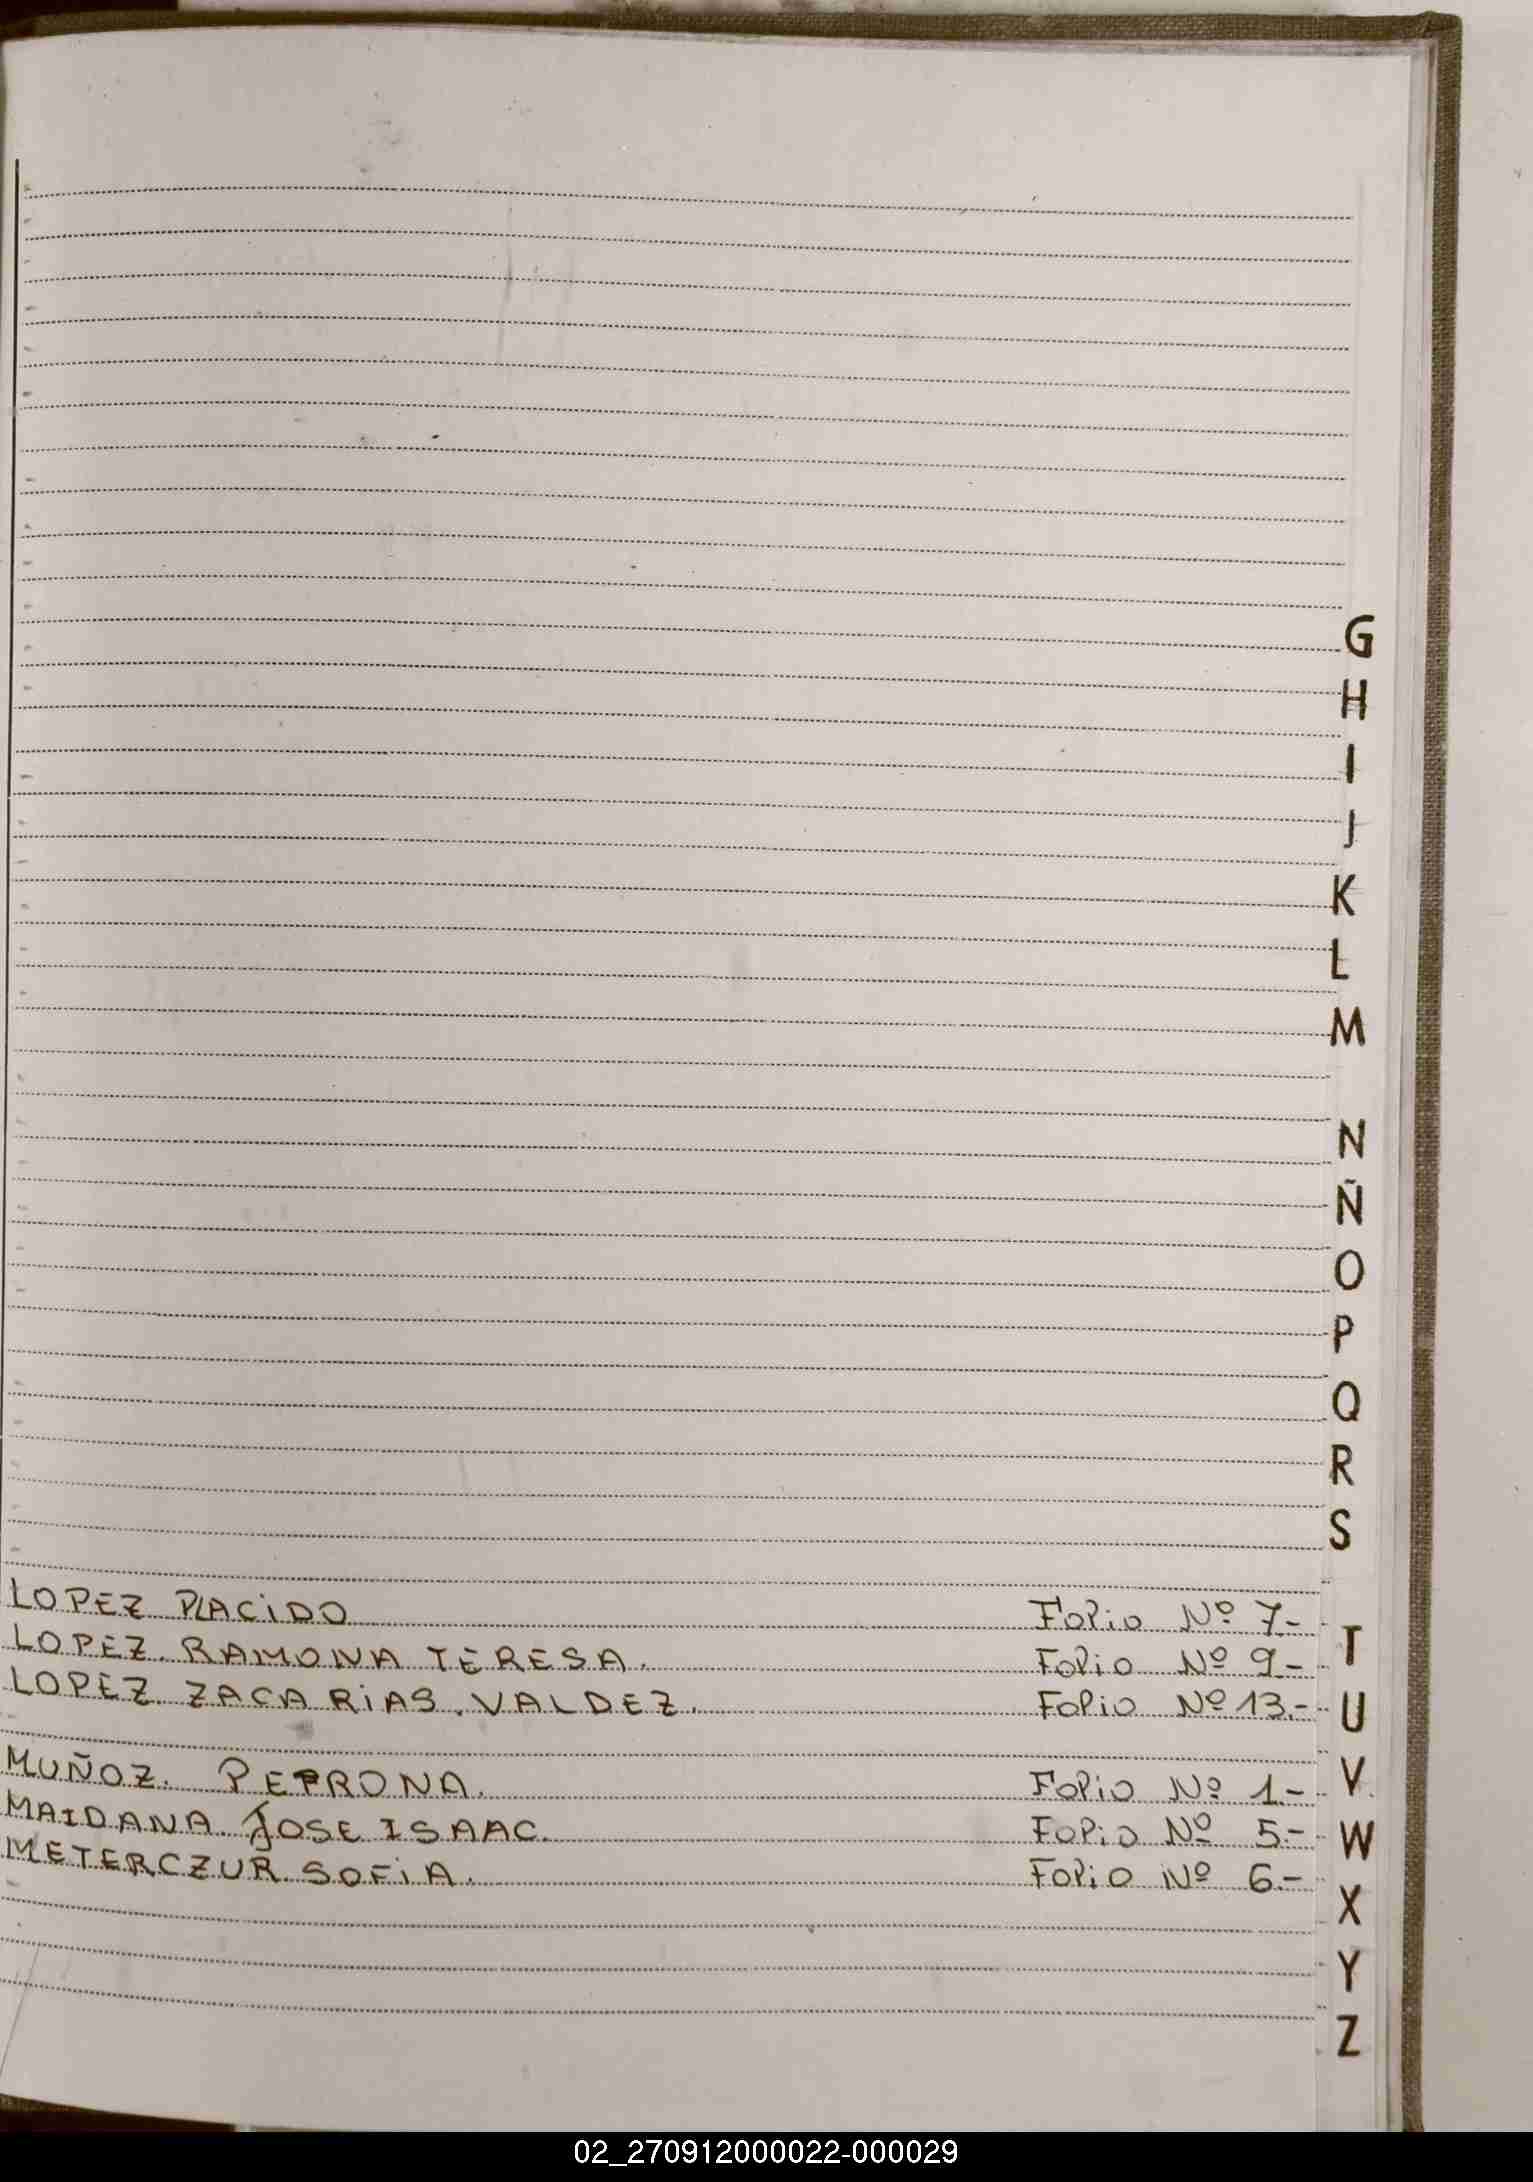 G
H
I
J
K
L
M
N
Ñ
O
P
Q
R
S
LOPEZ PLACIDO Folio Nº 7.-
LOPEZ. RAMONA TERESA. Folio Nº 9.-
T
LOPEZ. ZACARIAS. VALDEZ. Folio Nº 13.-
U
MUÑOZ. PETRONA. Folio Nº 1.-
V
MAIDANA. JOSE ISAAC. Folio Nº 5.-
W
METERCZUR. SOFIA. Folio Nº 6.-
X
Y
Z
02_270912000022-000029